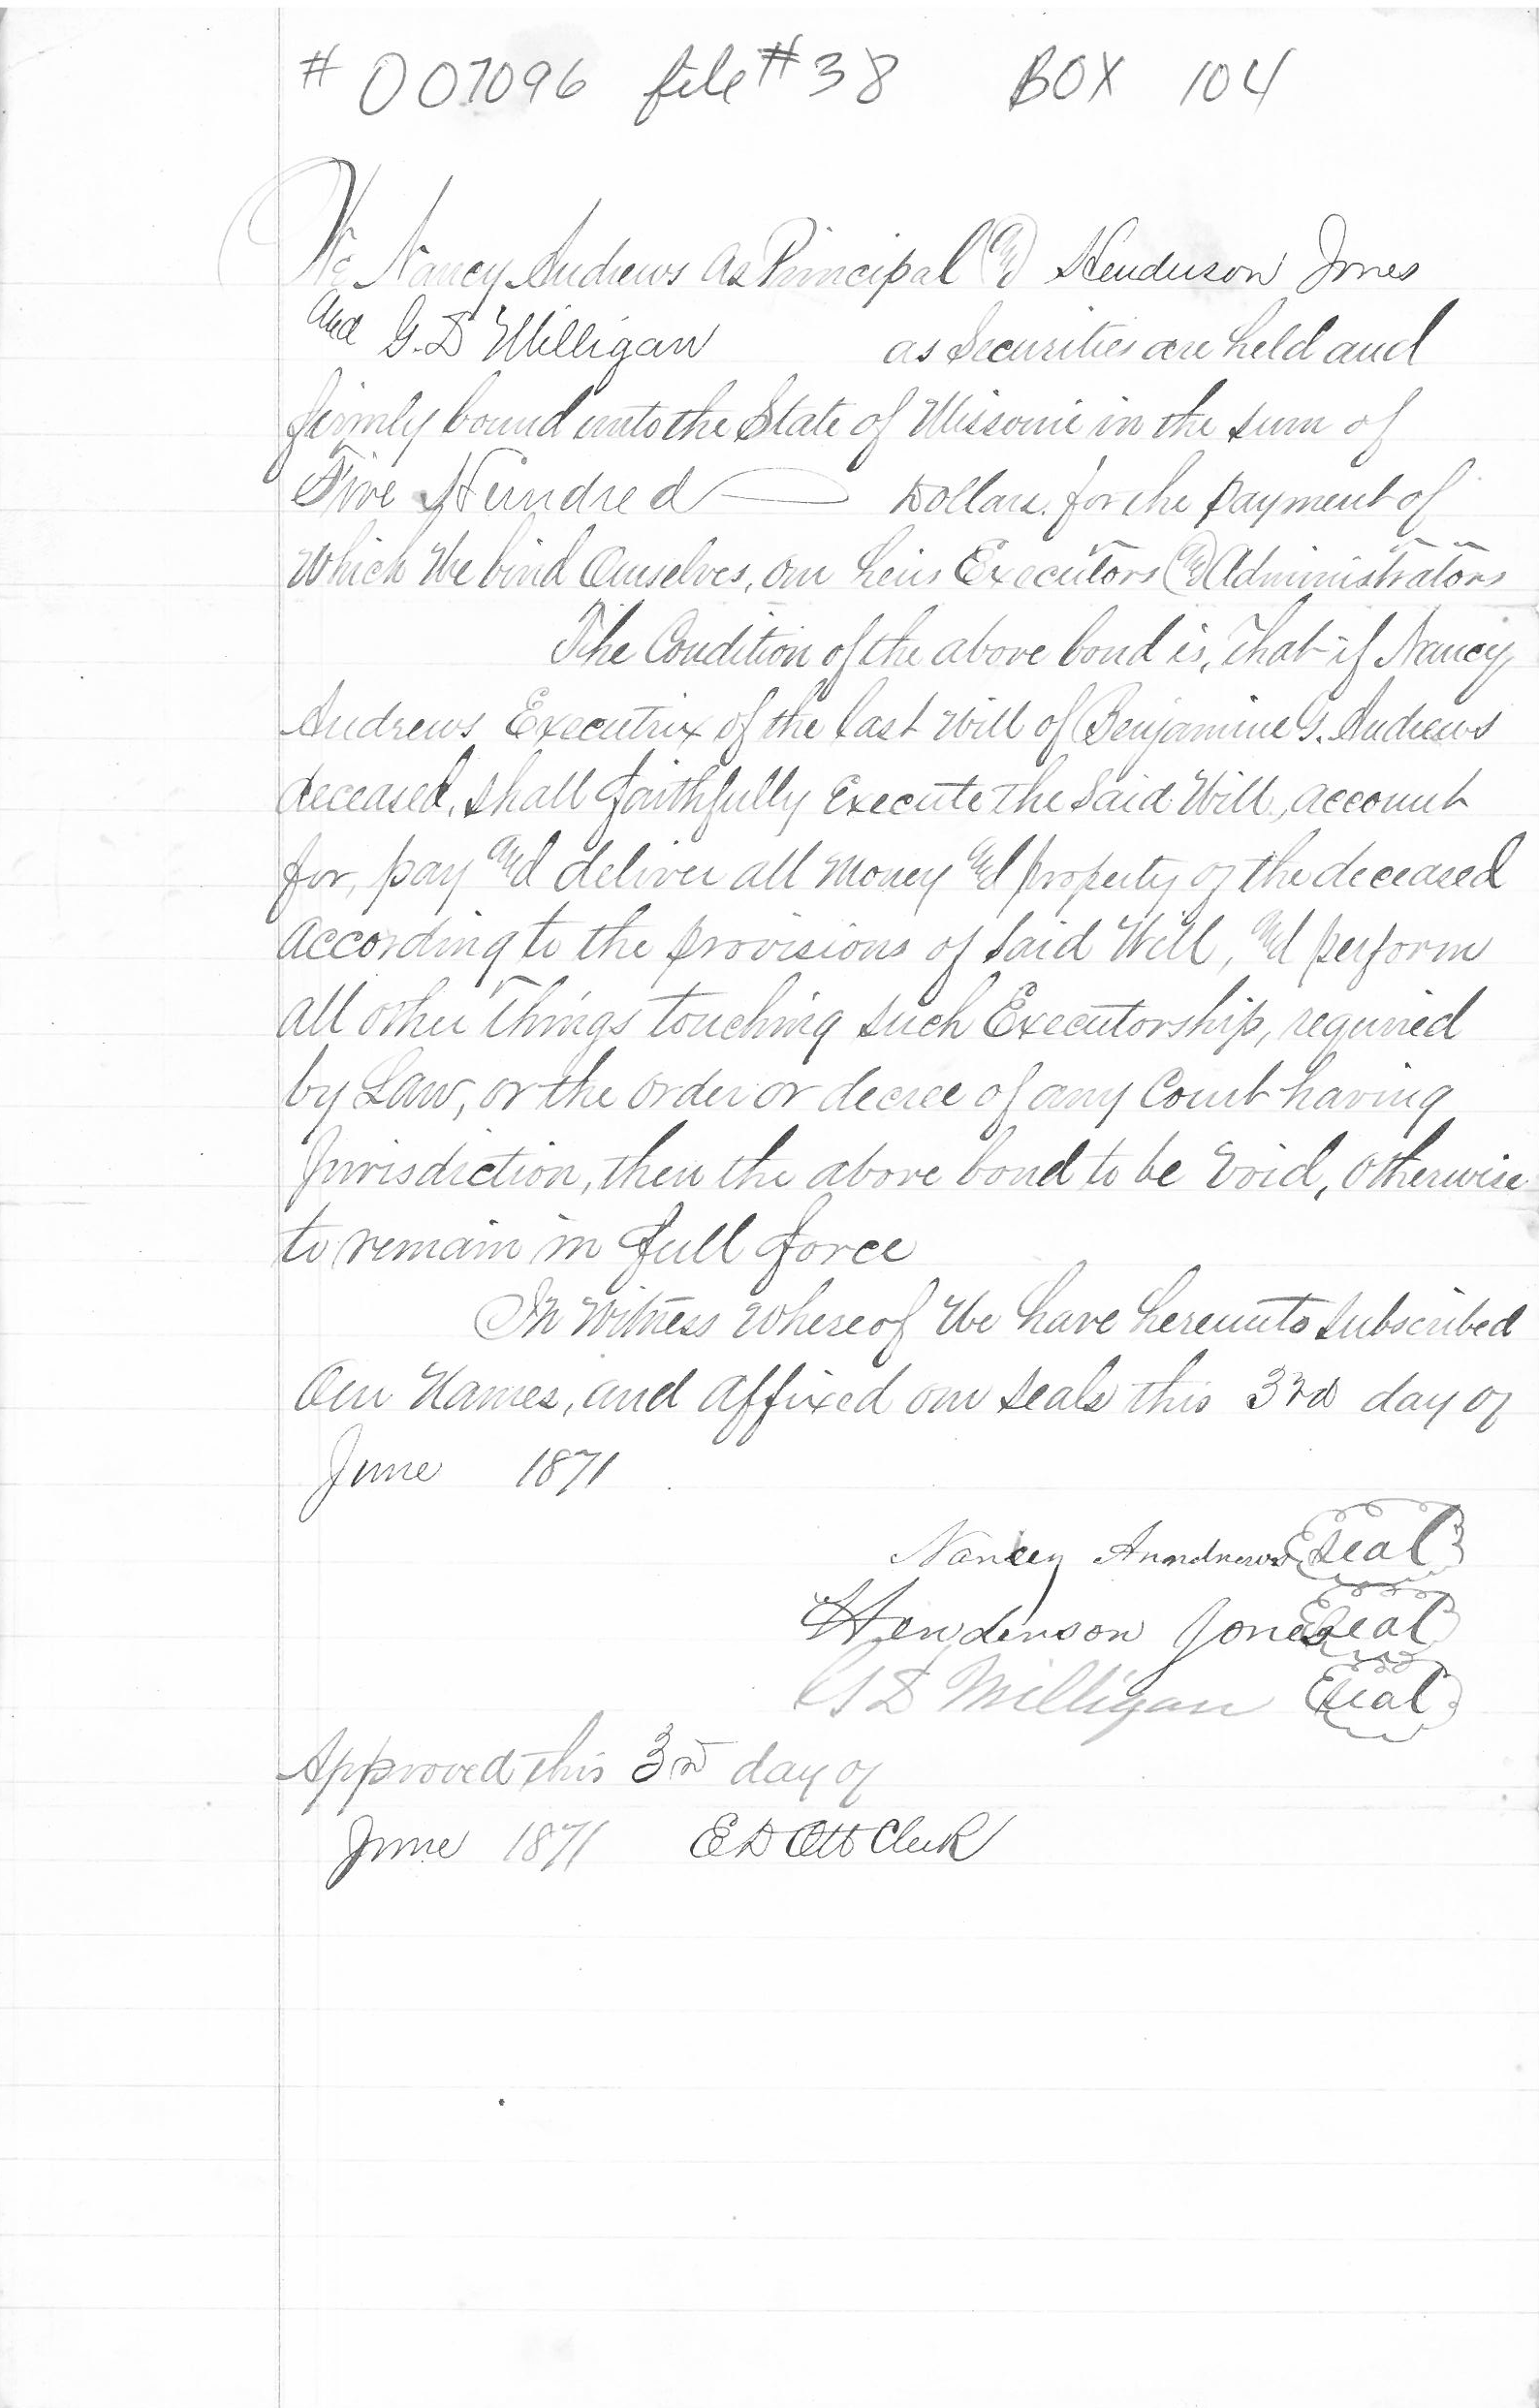 # 007096 file # 38 BOX 104
We Nancy Andrews as Principal and Henderson Jones
and G. D Milligan as Securities are held and
firmly bound unto the State of Missouri in the sum of
Five Hundred Dollars. for the payment of
Which We bind Ourselves, our heirs Executors and Administrators
The Condition of the above bond is, That if Nancy
Andrews Executrix of the last Will of Benjamine G. Andrews
deceased, shall faithfully Execute the Said Will, account
for, pay and deliver all Money and property of the deceased
According to the provisions of Said Will, and perform
all other Things touching such Executorship, required
by Law, or the order or decree of any Court having
Jurisdiction, then the above bond to be Void, otherwise
to remain in full force
In Witness Whereof We have hereunto subscribed
Our Names, and affixed our seals this 3rd day of
June 1871
Nancy Anndrews Seal
Henderson Jones Seal
G D Milligan Seal
Approved this 3rd day of
June 1871 E D Ott Clerk